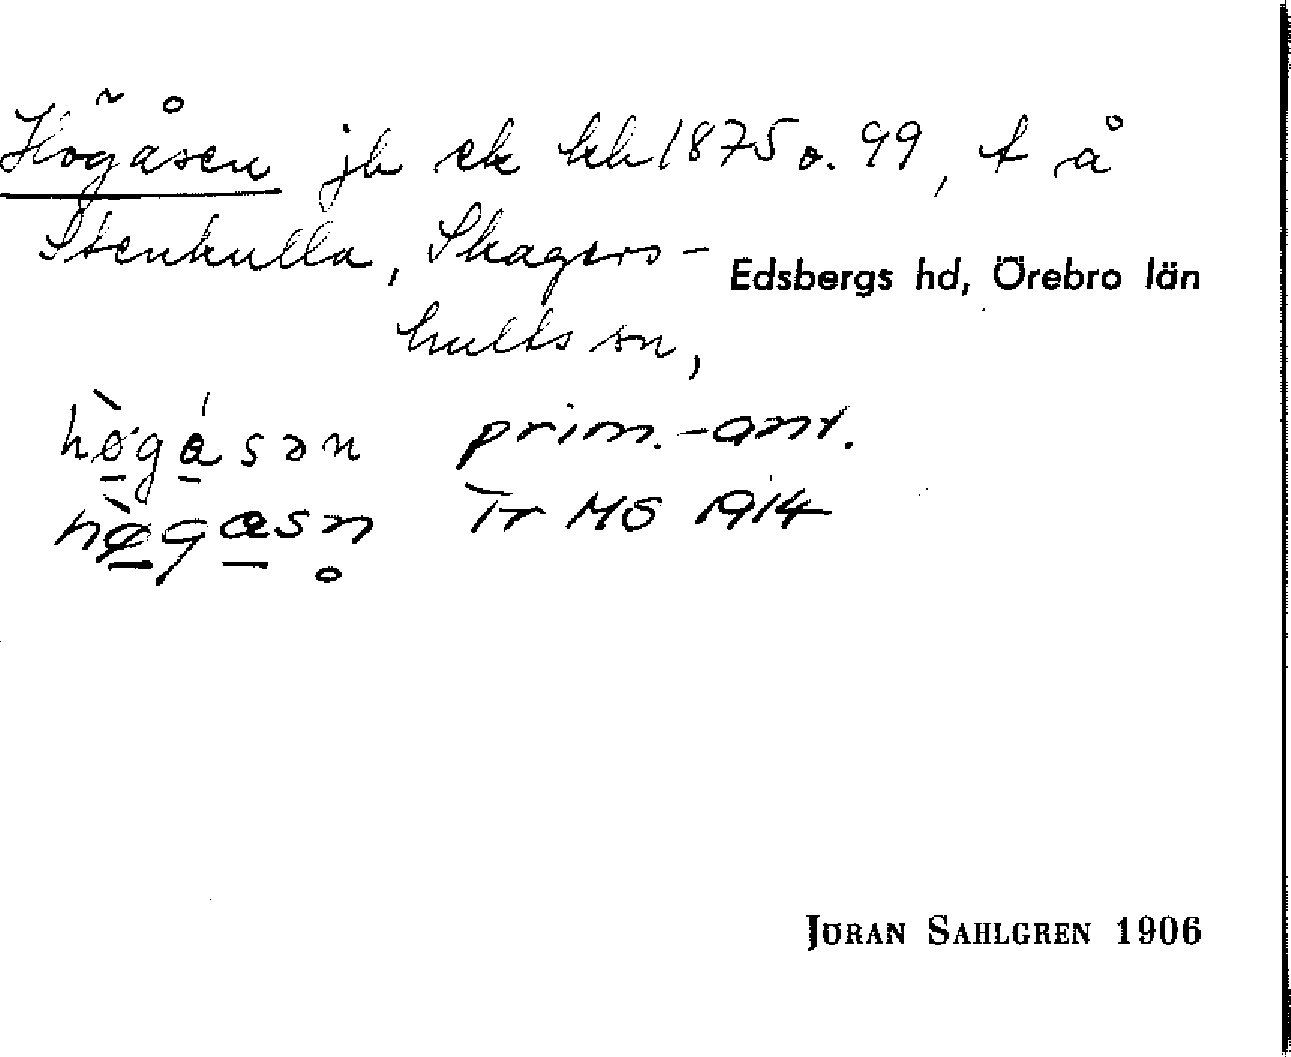 Högåsen jb ek kb 1875 o. 99, t å
Stenkulla, Skagers-
Edsbergs hd, Örebro län
hults sn,
hø̀gásən prim.-ant.
hø̀gasn̥ Tr MS 1914
JÖRAN SAHLGREN 1906